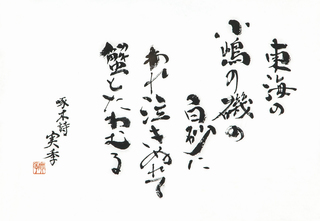 東海の
小嶋の磯の
白砂に
われ泣きぬれて
蟹とたわむる
啄木詩
実季